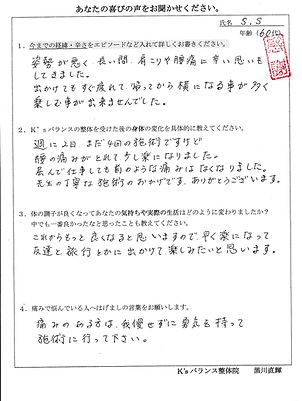 あなたの喜びの声をお聞かせください。
氏名 S.S
年齢(60代)
感謝
1．今までの経緯・辛さをエピソードなど入れて詳しくお書きください。
姿勢が悪く、長い間、肩こりや腰痛に辛い思いも
してきました。
出かけてもすぐ疲れて、帰ってから横になる事が多く
楽しむ事が出来ませんでした。
2．K'sバランスの整体を受けた後の身体の変化を具体的に教えてください。
週に2日、まだ4回の施術ですけど
腰の痛みがとれて少し楽になりました。
長んで仕事しても前のような痛みはなくなりました。
先生の丁寧な施術のおかげです。ありがとうございます。
3．体の調子が良くなってあなたの気持ちや実際の生活はどのように変わりましたか？
中でも一番良かったなと思ったことも教えてください。
これからもっと良くなると思いますので、早く楽になって
友達と旅行とかに出かけて、楽しみたいと思います。
4．痛みで悩んでいる人へはげましの言葉をお願いします。
痛みのある方は、我慢せずに勇気を持って
施術に行って下さい。
K'sバランス整体院 黒川直輝